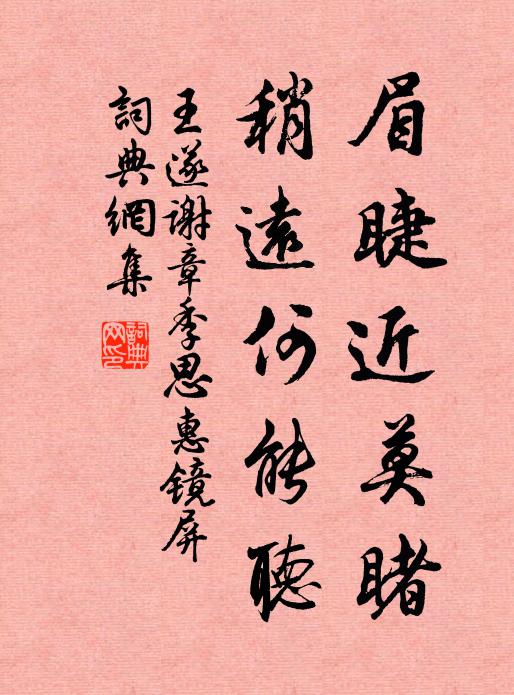 眉睫近莫睹
稍遠何能聽
王遂谢章季思惠镜屏
詞典網集
詞典網印